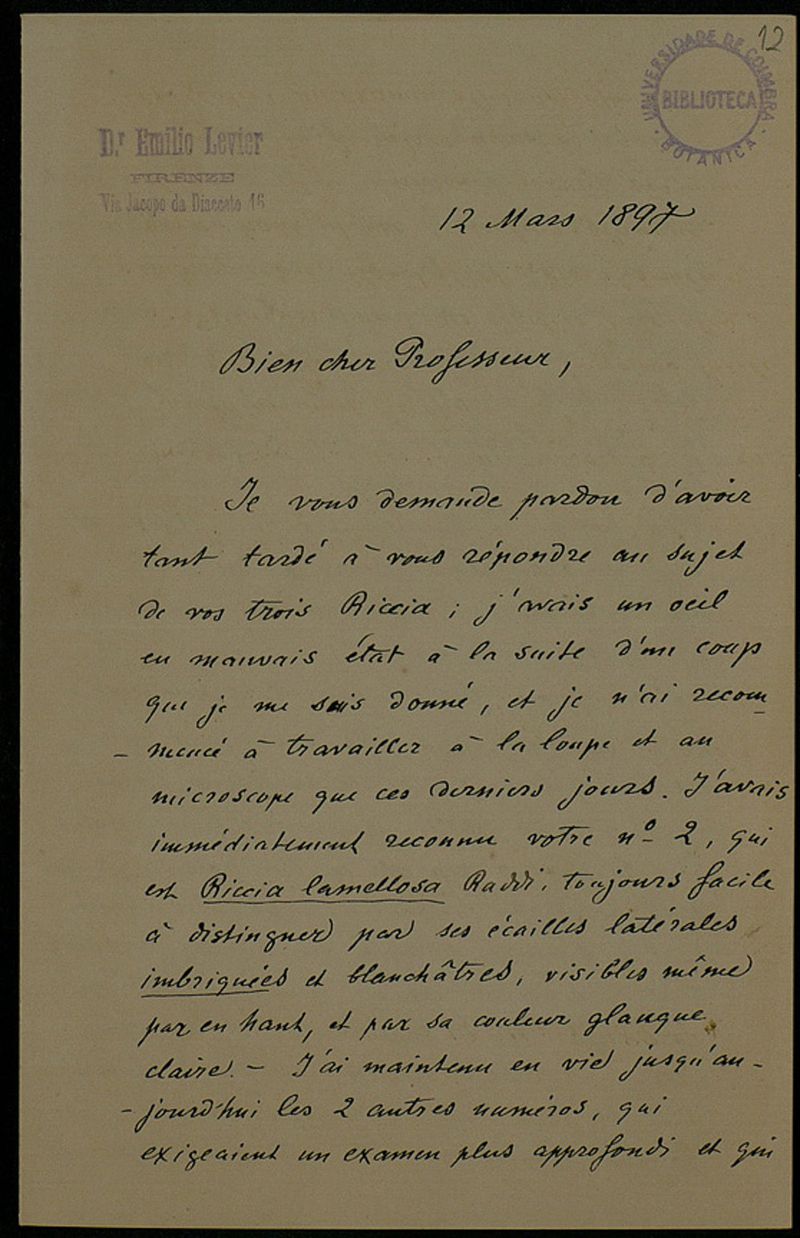 12
UNIVERSIDADE DE COIMBRA
BIBLIOTECA
BOTANICA
Dr Emilio Levier
FIRENZE
Via Jacopo da Diacceto 16
12 Mars 1897
Bien cher Professeur,
Je vous demande pardon d'avoir
tant tardé à vous répondre au sujet
de vos trois Riccia ; j'avais un oeil
en mauvais état à la suite d'un coup
que je me suis donné, et je n'ai recom
- mencé à travailler à la loupe et au
microscope que ces derniers jours. J'avais
immédiatement reconnu votre no 2, qui
est Riccia lamellosa Raddi, toujours facile
à distinguer par ses écailles latérales
imbriquées et blanchâtres, visibles même
par en haut, et par sa couleur glauque
claire. - J'ai maintenu en vie jusqu'au-
- jourd'hui les 2 autres numéros, qui
exigeaient un examen plus approfondi et qui